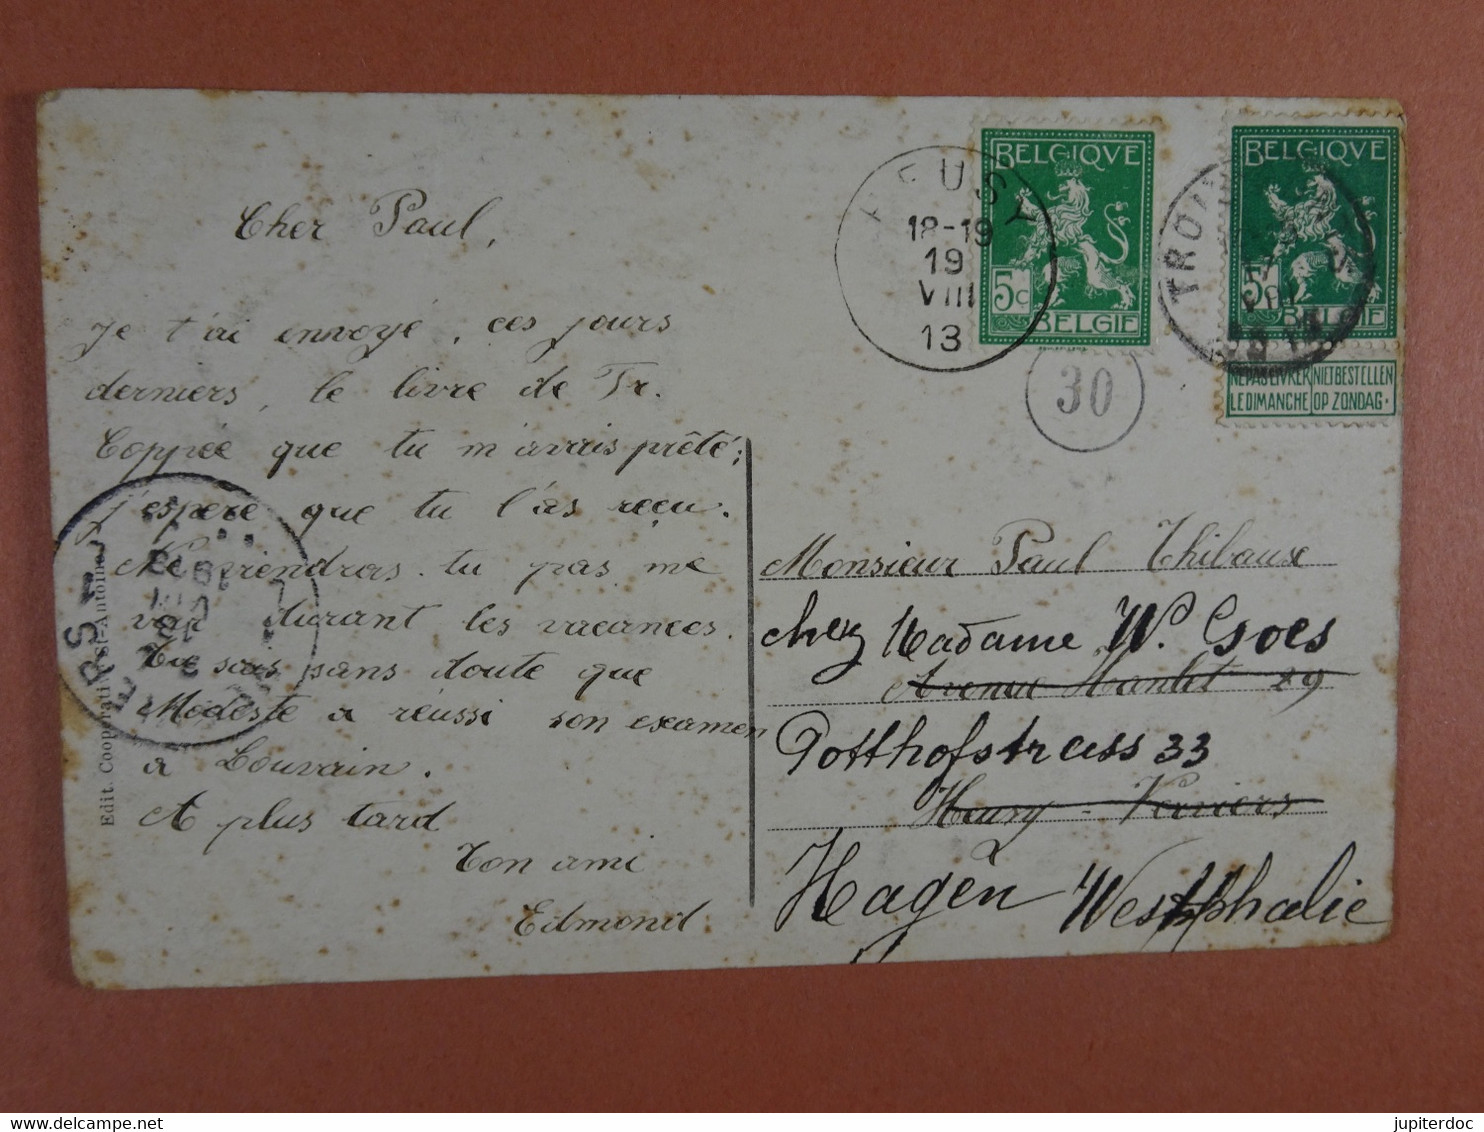 Cher Paul,
Je t'ai envoyé, ces jours
derniers, le livre de Fr.
Coppée que tu m'avais prêté;
j'espere que tu l'as reçu.
Ne viendras-tu pas me
voir durant les vacances.
Tu sais sans doute que
Modeste a réussi son examen
a Louvain.
A plus tard
Ton ami
Edmond
Edit. Coopérati St-Antoine
BELGIQVE
5c
BELGIE
HEUSY
18-19
19
VIII
13
30
BELGIQVE
5c
BELGIE
NE PAS LIVRER NIET BESTELLEN
LE DIMANCHE OP ZONDAG.
TROI
Monsieur Paul Thibaux
chez Madame W. Goes
Avenue Hanlet 29
Potthofstrass 33
Heusy - Verviers
Hagen Westphalie
jupiterdoc